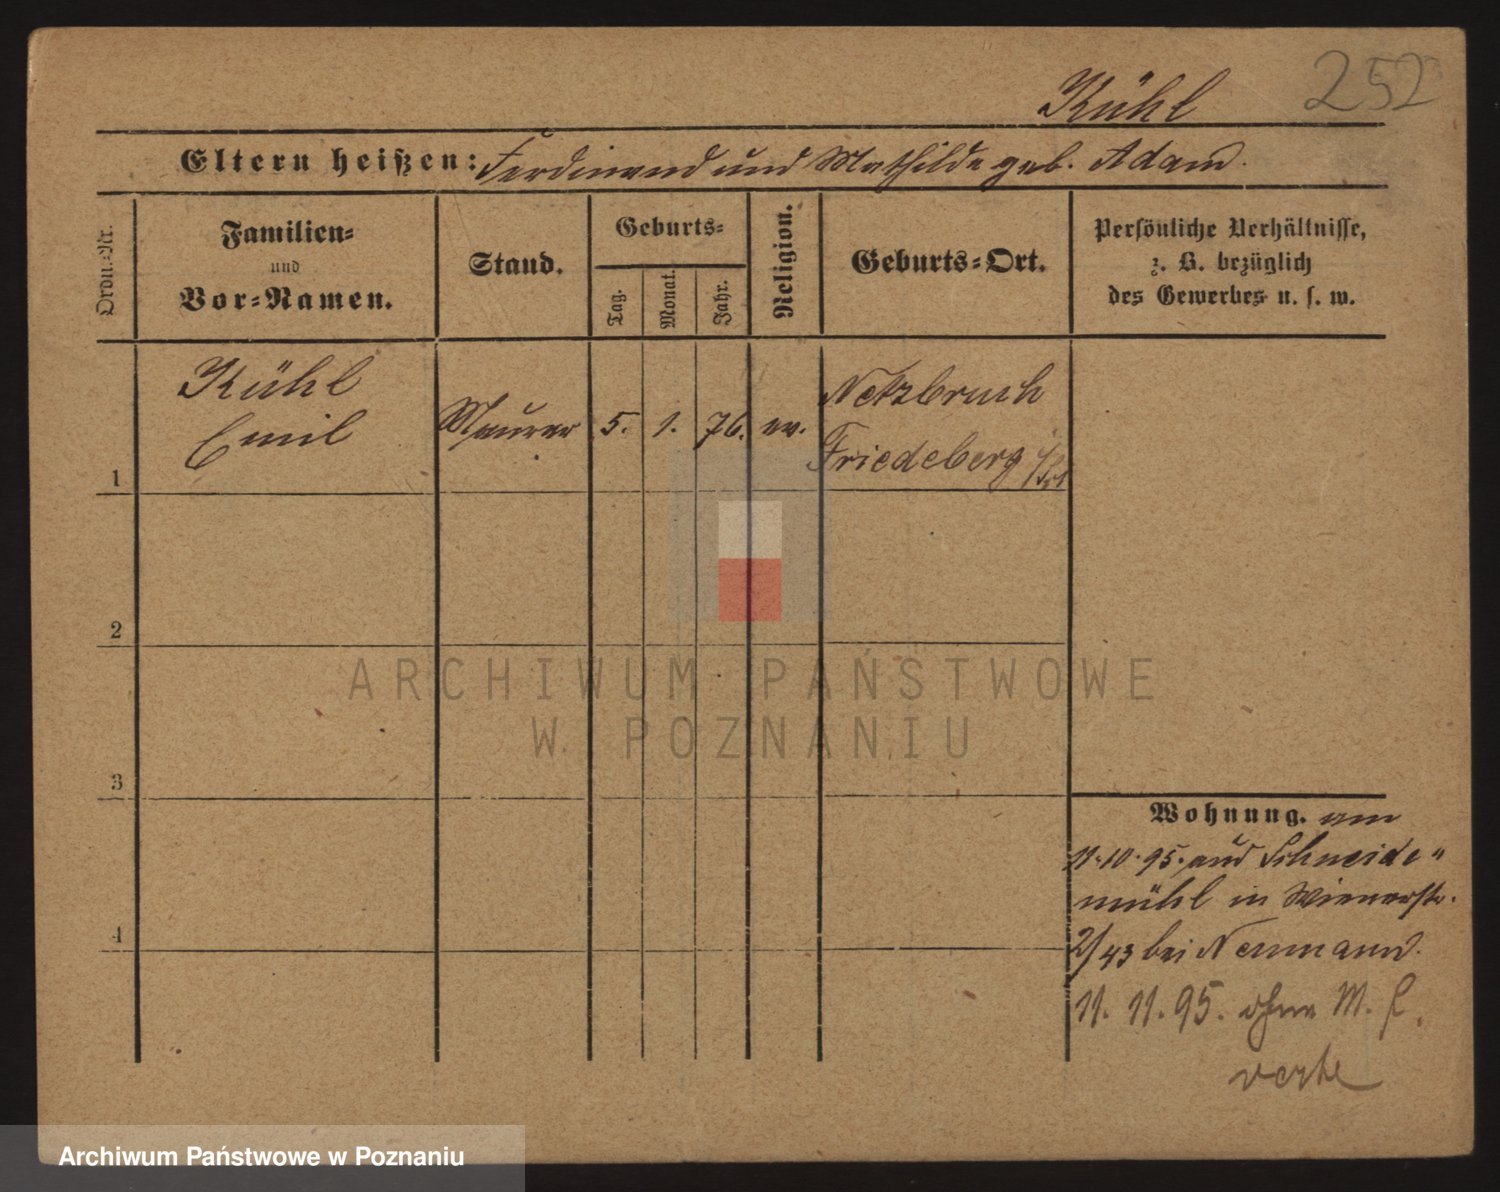 252
Kühl
Eltern heißen: Ferdinand und Mathilde geb. Adam.
Ordn.-Nr.
Familien-
und
Vor-Namen.
Stand.
Geburts-
Tag.
Monat.
Jahr.
Religion.
Geburts-Ort.
Persönliche Verhältnisse,
z. B. bezüglich
des Gewerbes u. s. w.
1
Kühl
Emil
Maurer
5.
1.
76.
ev.
Netzbruch
Friedeberg
2
3
4
Wohnung. am
11.10.95. aus Schneide"
mühl in Wienerstr.
2/43 bei Neumann.
11. 11. 95. ohne M.
verte
ARCHIWUM PAŃSTWOWE
W POZNANIU
Archiwum Państwowe w Poznaniu